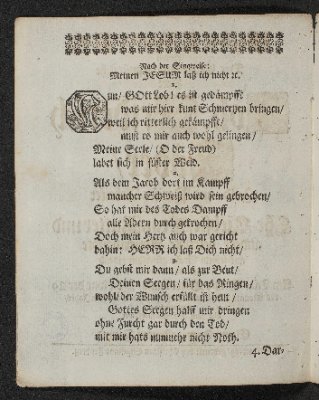 Nach der Singweise:
Meinen JESUM laß ich nicht ꝛc.
1.
Nun/ GOtt Lob! es ist gedämpfft
was mir hier kunt Schmertzen bringen/
weil ich ritterlich gekämpfft/
must es mir auch wohl gelingen/
Meine Seele/ (O der Freud)
labet sich in süster Weid.
2.
Als dem Jacob dort im Kampff
mancher Schweiß wird sein gebrochen/
So hat mir des Todes Dampff
alle Adern durchgekrochen/
Doch mein Hertz auch war gericht
dahin: HERR ich laß Dich nicht/
3.
Du gebst mir dann/ als zur Beut/
Deinen Seegen/ für das Ringen/
wohl der Wunsch erfüllt ist heut/
Gottes Seegen halff mir dringen
ohne Furcht gar durch den Tod/
mit mir hats nunmehr nicht Noth.
4. Dar-